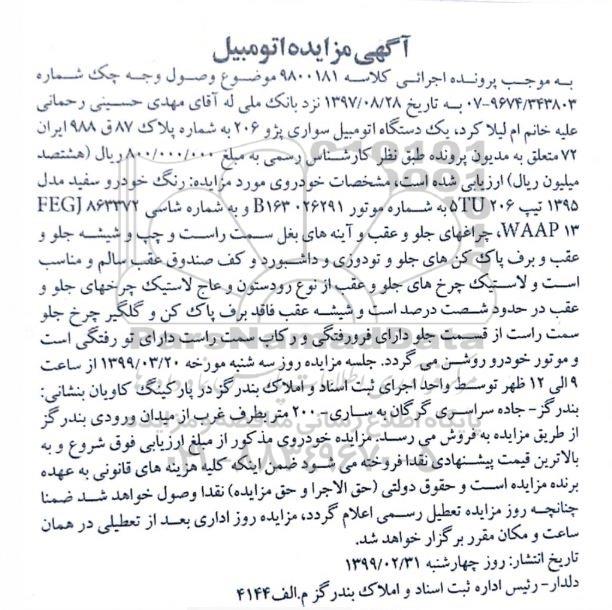 آگهی مزایده اتومبیل
به موجب پرونده اجرائی کلاسه ۹۸۰۰۱۸۱ موضوع وصول وجه چک شماره
۰۷-۹۶۷۴/۳۴۳۸۰۳ به تاریخ ۱۳۹۷/۰۸/۲۸ نزد بانک ملی له آقای مهدی حسینی رحمانی
علیه خانم ام لیلا کرد، یک دستگاه اتومبیل سواری پژو ۲۰۶ به شماره پلاک ۸۷ق ۹۸۸ ایران
۷۲ متعلق به مدیون پرونده طبق نظر کارشناس رسمی به مبلغ ۸۰۰/۰۰۰/۰۰۰ ریال (هشتصد
میلیون ریال) ارزیابی شده است، مشخصات خودروی مورد مزایده: رنگ خودرو سفید مدل
۱۳۹۵ تیپ ۲۰۶ ۵TU به شماره موتور B۱۶۳۰۰۲۶۲۹۱ و به شماره شاسی FEGJ ۸۶۳۳۷۲
WAAP ۱۳، چراغهای جلو و عقب و آینه های بغل سمت راست و چپ و شیشه جلو و
عقب و برف پاک کن های جلو و تودوزی و داشبورد و کف صندوق عقب سالم و مناسب
است و لاستیک چرخ های جلو و عقب از نوع رودستون و عاج لاستیک چرخهای جلو و
عقب در حدود شصت درصد است و شیشه عقب فاقد برف پاک کن و گلگیر چرخ جلو
سمت راست از قسمت جلو دارای فرورفتگی و رکاب سمت راست دارای تو رفتگی است
و موتور خودرو روشن می گردد. جلسه مزایده روز سه شنبه مورخه ۱۳۹۹/۰۳/۲۰ از ساعت
۹ الی ۱۲ ظهر توسط واحد اجرای ثبت اسناد و املاک بندرگز در پارکینگ کاویان بنشانی:
بندرگز- جاده سراسری گرگان به ساری- ۲۰۰ متر بطرف غرب از میدان ورودی بندر گز
از طریق مزایده به فروش می رسد. مزایده خودروی مذکور از مبلغ ارزیابی فوق شروع و به
بالاترین قیمت پیشنهادی نقدا فروخته می شود ضمن اینکه کلیه هزینه های قانونی به عهده
برنده مزایده است و حقوق دولتی (حق الاجرا و حق مزایده) نقدا وصول خواهد شد ضمنا
چنانچه روز مزایده تعطیل رسمی اعلام گردد، مزایده روز اداری بعد از تعطیلی در همان
ساعت و مکان مقرر برگزار خواهد شد.
تاریخ انتشار: روز چهارشنبه ۱۳۹۹/۰۲/۳۱
دلدار- رئیس اداره ثبت اسناد و املاک بندرگز م.الف۴۱۴۴